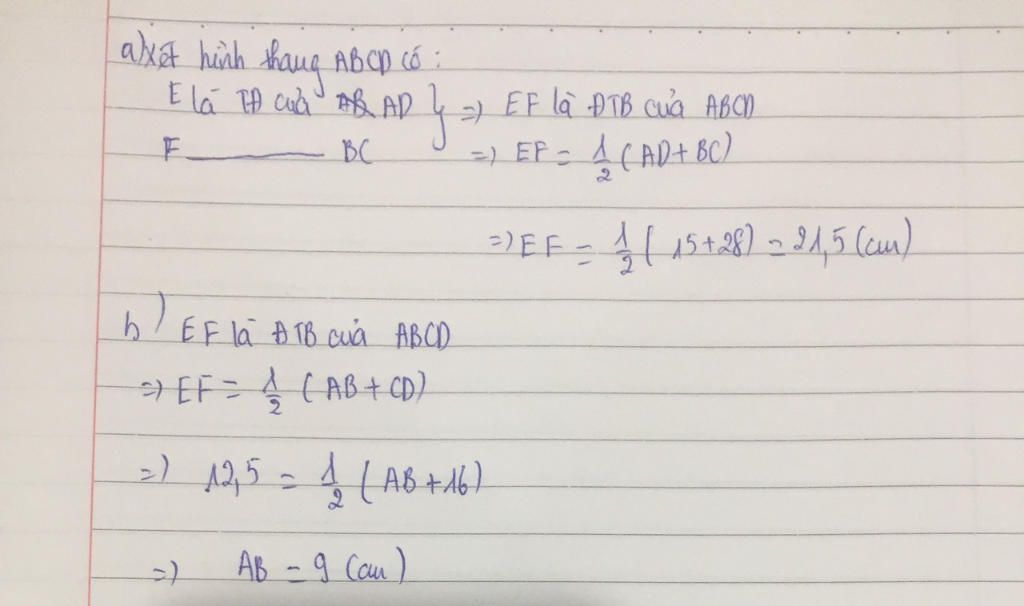 a) Xét hình thang ABCD có:
E là TĐ của AD } => EF là ĐTB của ABCD
F ———— BC => EF = 1/2 (AD + BC)
=> EF = 1/2 (15 + 28) = 21,5 (cm)
b) EF là ĐTB của ABCD
=> EF = 1/2 (AB + CD)
=> 12,5 = 1/2 (AB + 16)
=> AB = 9 (cm)